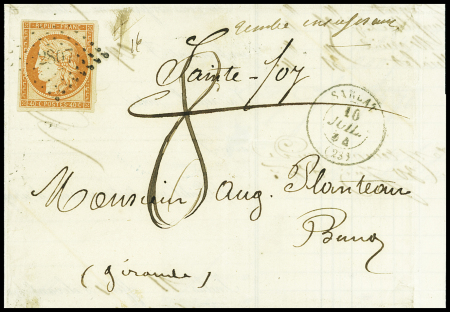 REPUB. FRANC.
40 C. POSTES 40 C.
timbre insuffisant
Sainte-Foy
8
SARLAT
10
JUIL.
(23)
Monsieur Aug. Planteau
(Gironde)